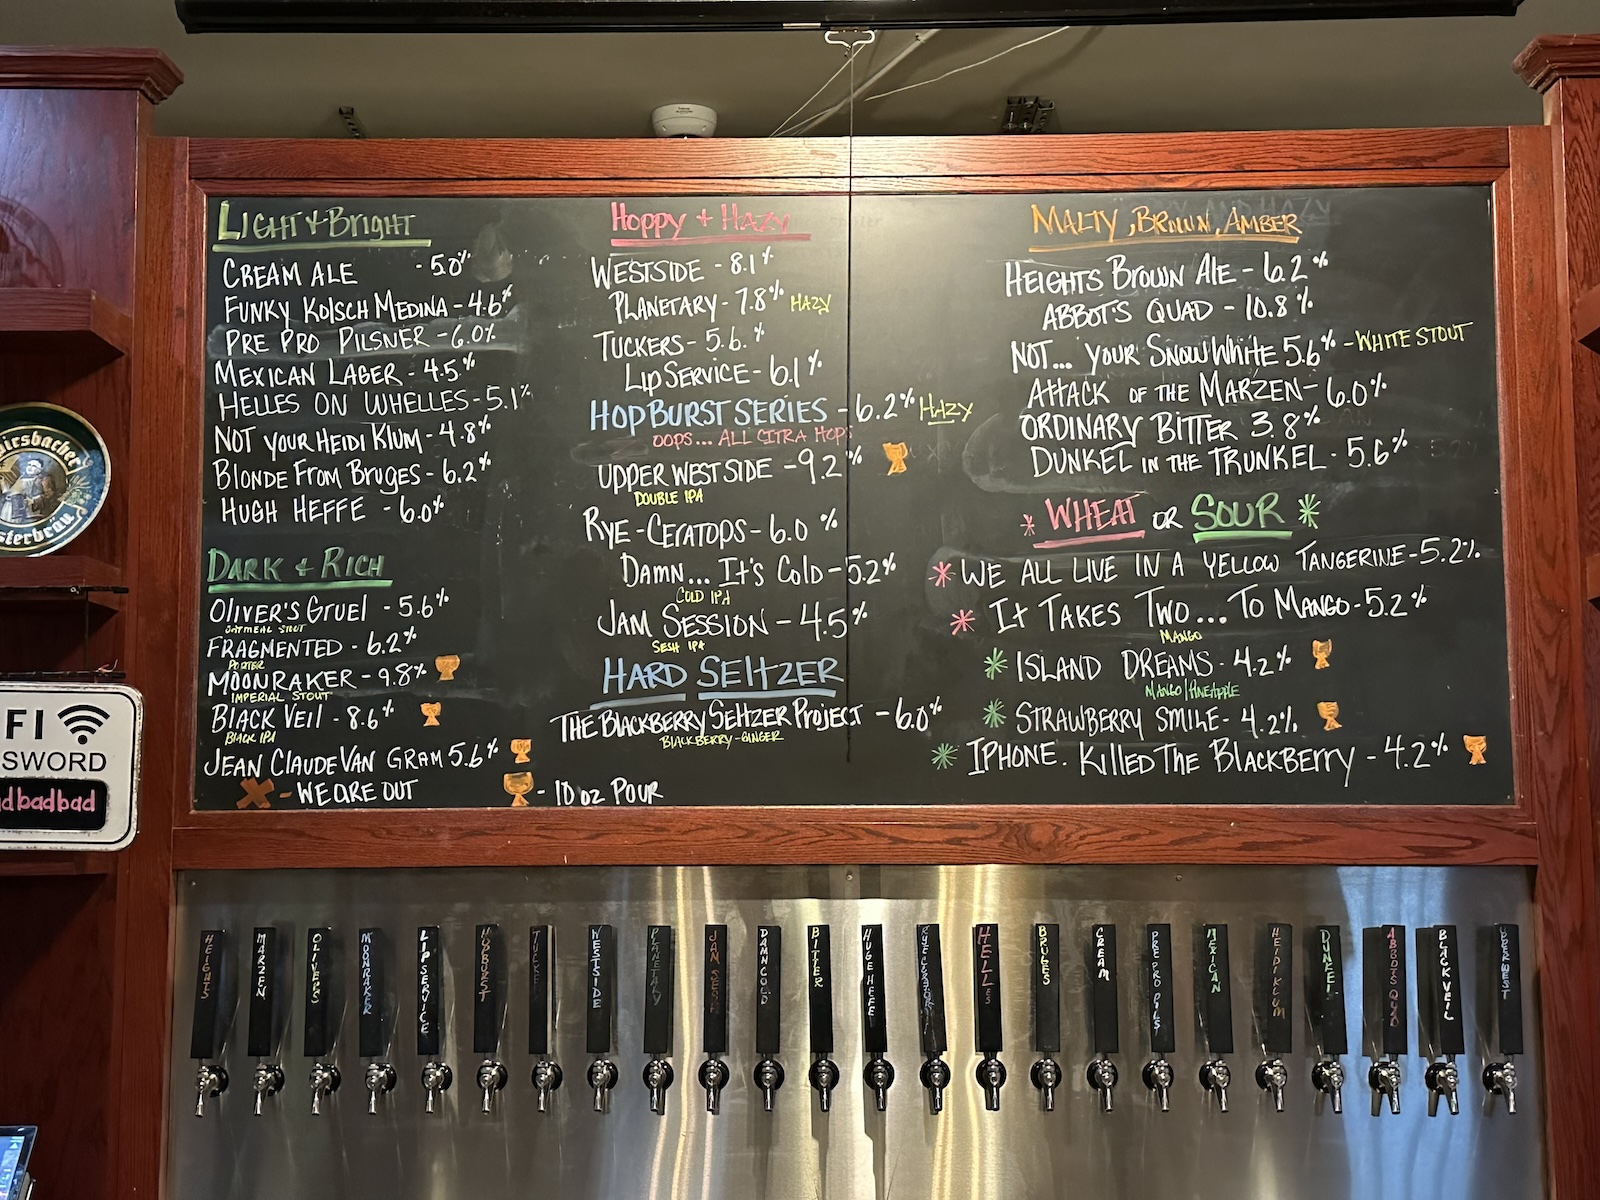 LIGHT + BRIGHT
CREAM ALE - 5.0%
FUNKY KOLSCH MEDINA - 4.6%
PRE PRO PILSNER - 6.0%
MEXICAN LAGER - 4.5%
HELLES ON WHELLES - 5.1%
NOT YOUR HEIDI KLUM - 4.8%
BLONDE FROM BRUGES - 6.2%
HUGH HEFFE - 6.0%
DARK + RICH
OLIVER'S GRUEL - 5.6%
OATMEAL STOUT
FRAGMENTED - 6.2%
PORTER
MOONRAKER - 9.8%
IMPERIAL STOUT
BLACK VEIL - 8.6%
BLACK IPA
JEAN CLAUDE VAN GRAM 5.6%
X - WE ARE OUT
- 10 oz POUR
HOPPY + HAZY
WESTSIDE - 8.1%
PLANETARY - 7.8% HAZY
TUCKERS - 5.6.%
LIP SERVICE - 6.1%
HOPBURST SERIES - 6.2% HAZY
OOPS... ALL CITRA HOPS
UPPER WEST SIDE - 9.2%
DOUBLE IPA
RYE-CERATOPS - 6.0 %
DAMN... IT'S COLD - 5.2%
COLD IPA
JAM SESSION - 4.5%
SESH IPA
HARD SELTZER
THE BLACKBERRY SELTZER PROJECT - 6.0%
BLACKBERRY-GINGER
MALTY, BROWN, AMBER
HEIGHTS BROWN ALE - 6.2%
ABBOT'S QUAD - 10.8%
NOT... YOUR SNOW WHITE 5.6% - WHITE STOUT
ATTACK OF THE MARZEN - 6.0%
ORDINARY BITTER 3.8%
DUNKEL IN THE TRUNKEL - 5.6%
* WHEAT OR SOUR *
* WE ALL LIVE IN A YELLOW TANGERINE - 5.2%
* IT TAKES TWO... TO MANGO - 5.2%
MANGO
* ISLAND DREAMS - 4.2%
MANGO/PINEAPPLE
* STRAWBERRY SMILE - 4.2%
* IPHONE. KILLED THE BLACKBERRY - 4.2%
irsbacher
sterbräu
FI
SSWORD
dbadbad
HEIGHTS
MARZEN
OLIVERS
MOONRAKER
LIP SERVICE
HOPBURST
TUCKE
WESTSIDE
PLANETARY
JAM SESH
DAMN COLD
BITTER
HUGE HEFE
RYE CERATOPS
HELLES
BRUGES
CREAM
PRE PRO PILS
MEXICAN
HEIDI KLUM
DUNKEL
ABBOTS QUAD
BLACK VEIL
UPER WEST